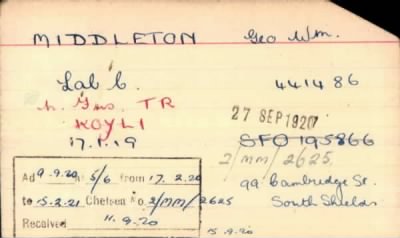 MIDDLETON Geo Wm.
Lab C. 441486
N. Fus. TR
KOYLI 27 SEP 1920
17.1.19 SFO 195866
2/MM/2625.
Ad 9.9.20 At 5/6 from 17.2.20 99 Cambridge St.
to 15.2.21 Chelsea No. 2/MM/2625 South Shields
Received 11.9.20
15.9.20